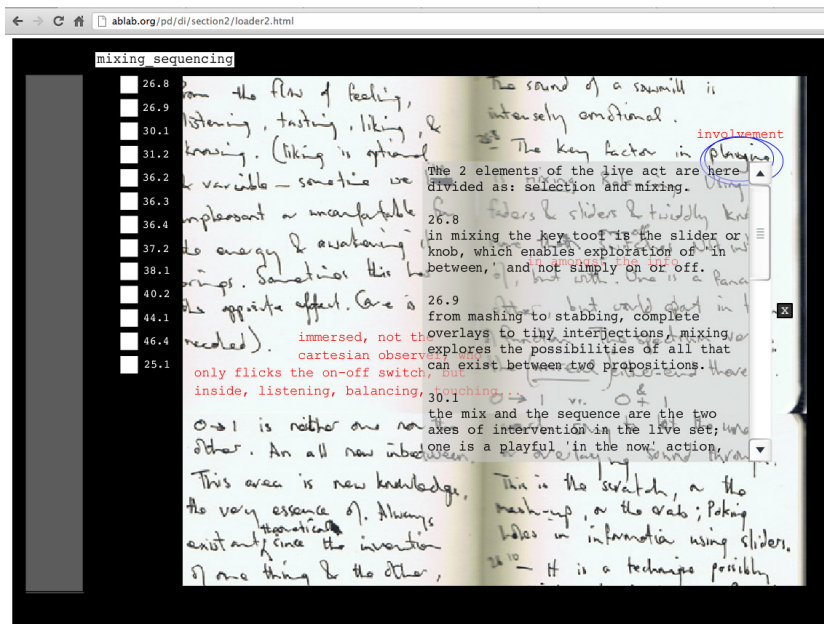 ablab.org/pd/di/section2/loader2.html
mixing_sequencing
26.8
26.9
30.1
31.2
36.2
36.3
36.4
37.2
38.1
40.2
44.1
46.4
25.1
from the flow of feeling,
listening, tasting, liking, &
knowing. (liking is optional
& variable – sometime we
unpleasant or uncomfortable for
the energy & awakening it
brings. Sometimes this has
the opposite effect. Care is
needed).
immersed, not the
cartesian observer, who
only flicks the on-off switch, but
inside, listening, balancing, touching...
0→1 is neither one nor the
other. An all new inbetween.
This area is new knowledge,
the very essence of. Always
theoretically
extant since the invention
of one thing & the other,
The sound of a sawmill is
intensely emotional.
involvement
The key factor in playing
The 2 elements of the live act are here
divided as: selection and mixing.
26.8
in mixing the key tool is the slider or
knob, which enables exploration of 'in
between,' and not simply on or off.
in amongst the info
26.9
from mashing to stabbing, complete
overlays to tiny interjections, mixing
explores the possibilities of all that
can exist between two propositions.
30.1
the mix and the sequence are the two
axes of intervention in the live set;
one is a playful 'in the now' action,
x
This is the scratch, or the
mash-up, or the crab; Poking
holes in information using sliders.
26.10 – It is a technique possibly